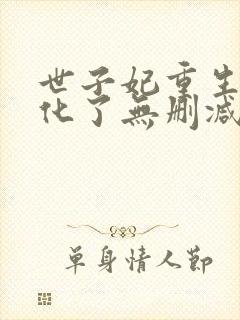 世子妃重生
化了無刪減
單身情人節